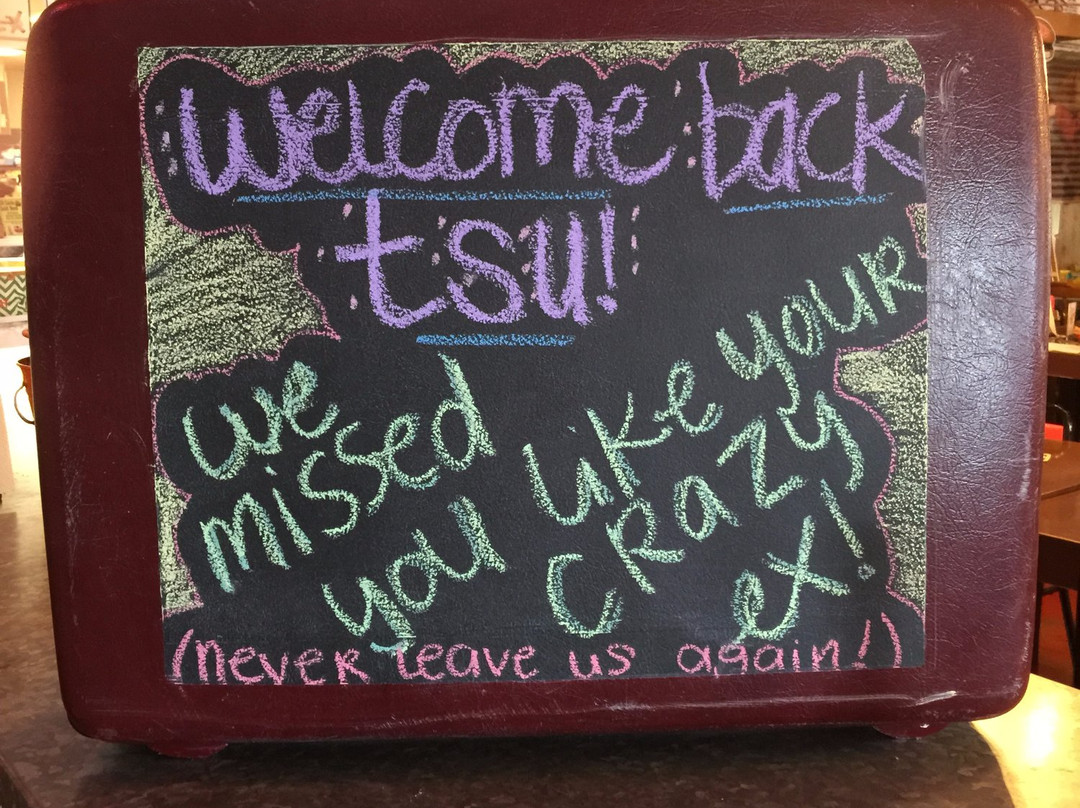 welcome back
tsu!
we
missed
you
like your
crazy
ex!
(never leave us again!)